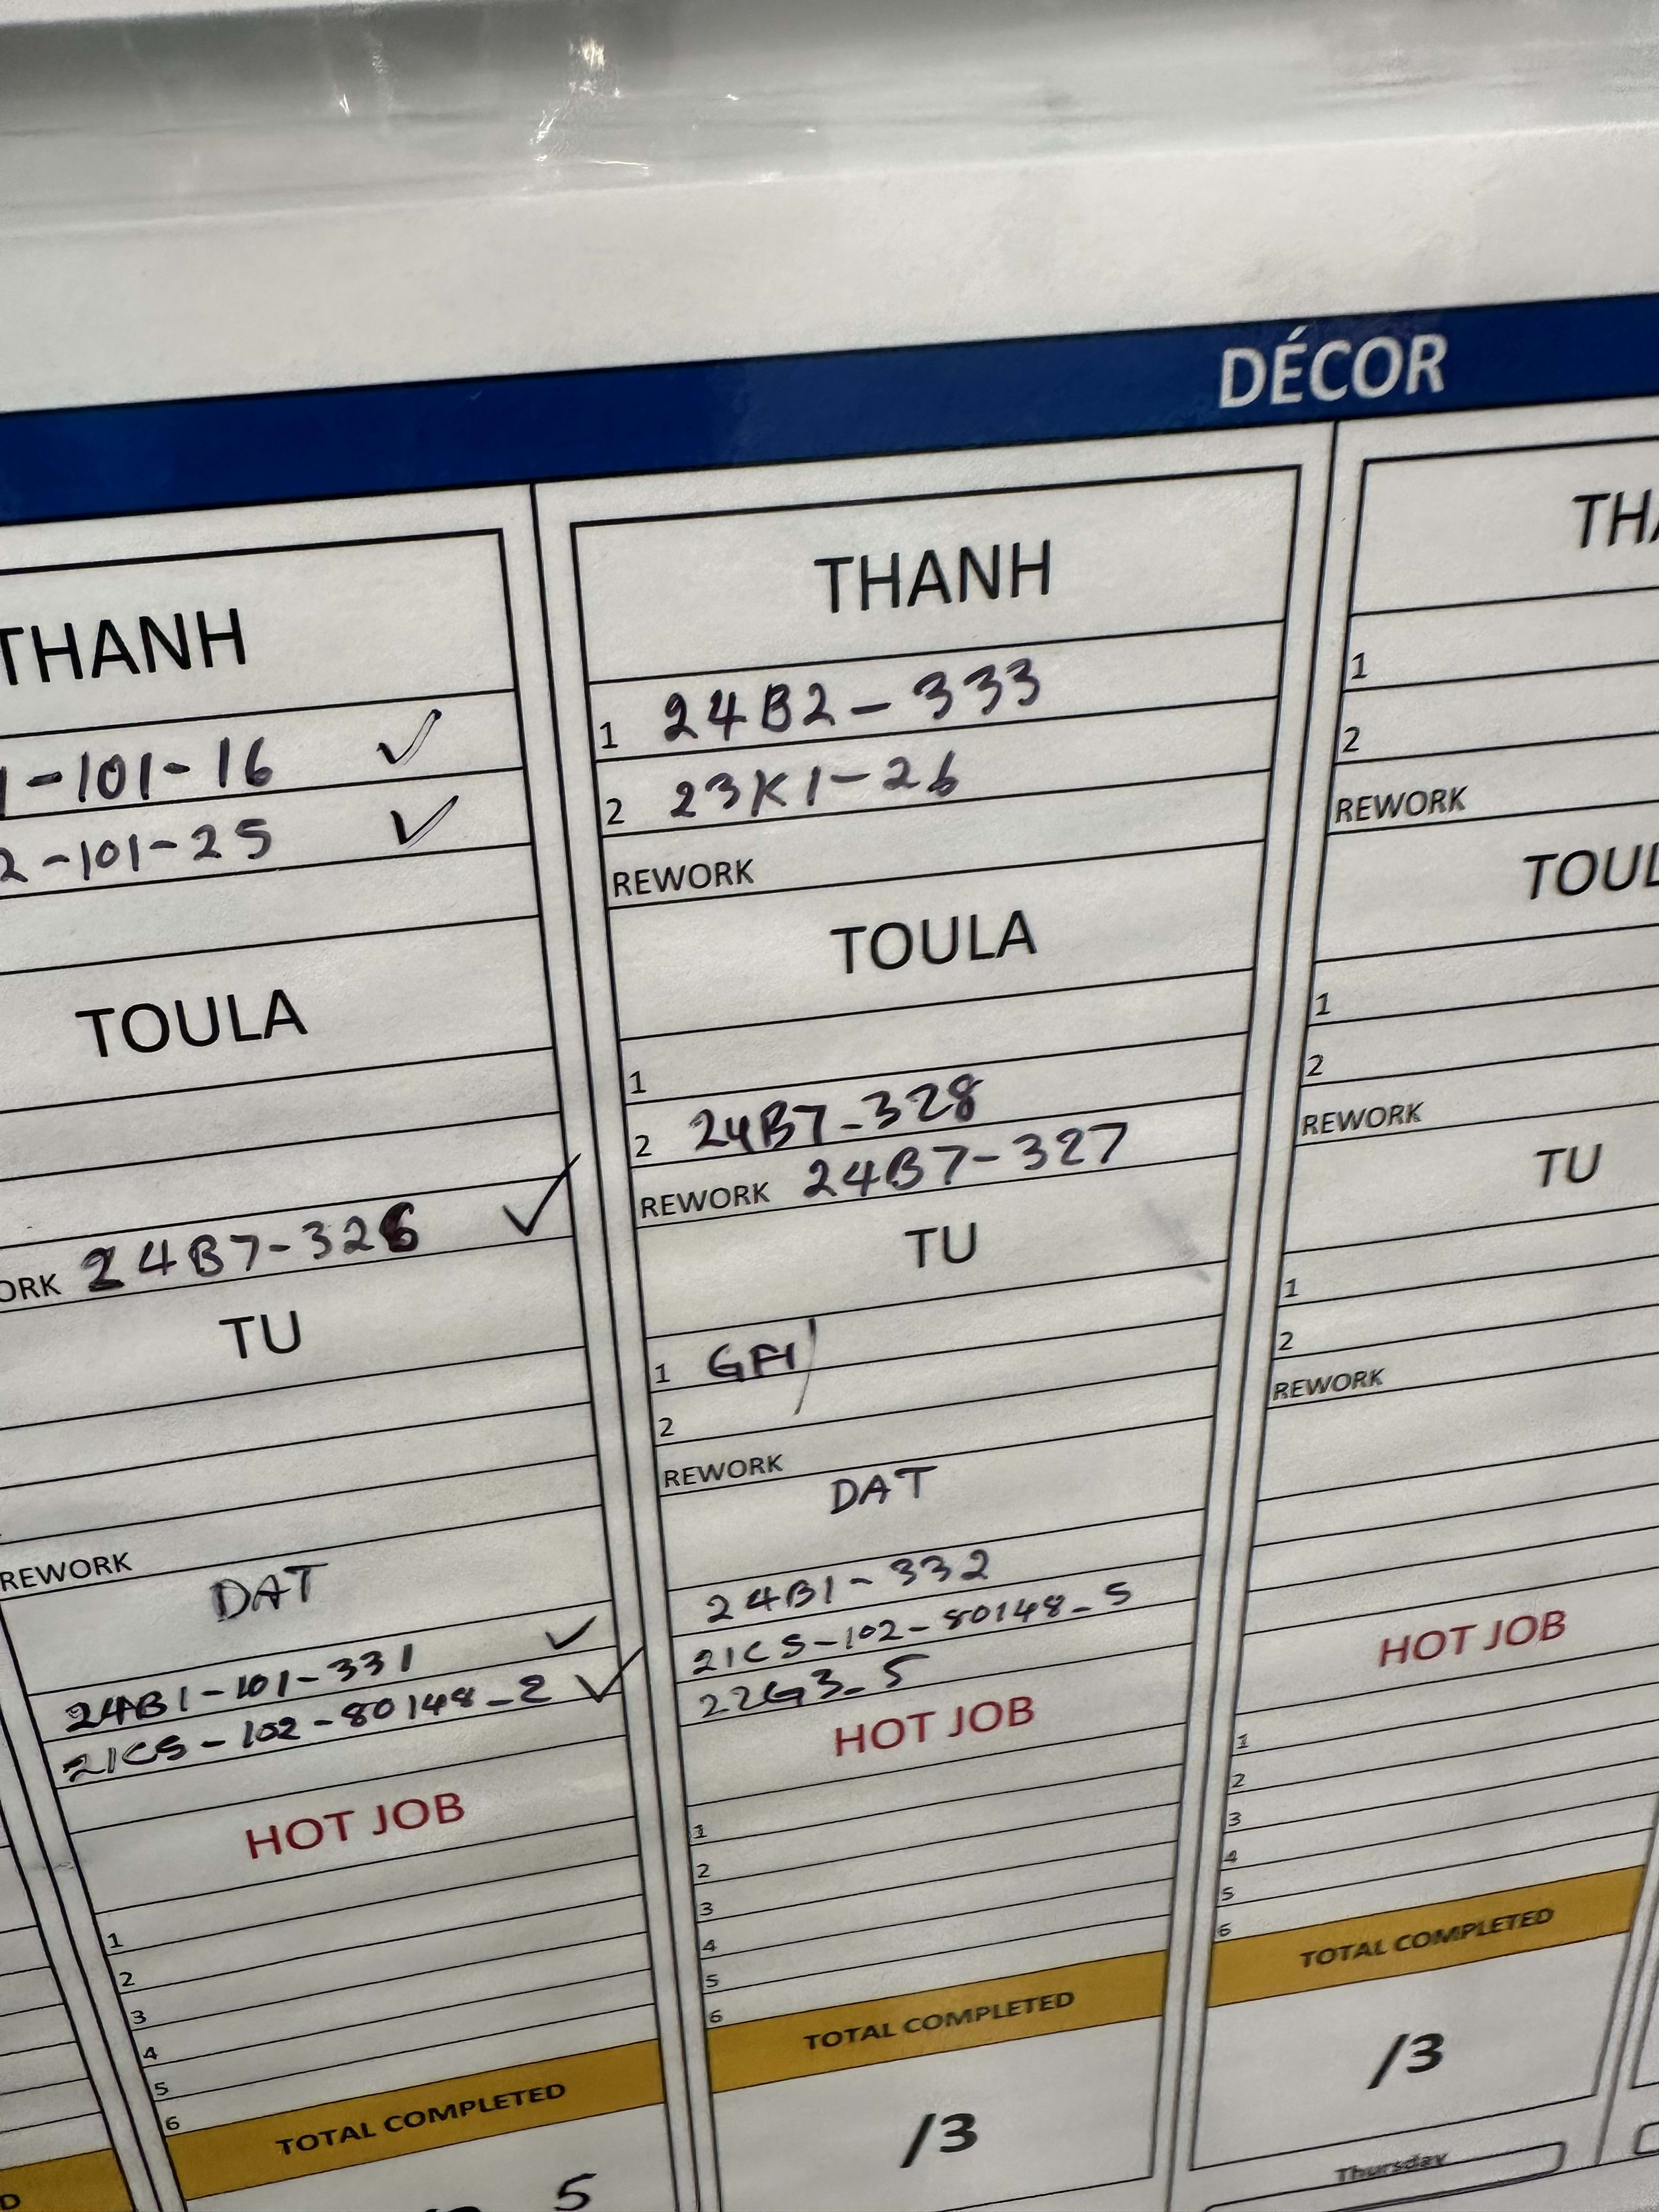 DÉCOR
THANH
1-101-16 ✓
2-101-25 ✓
TOULA
24B7-326 ✓
TU
REWORK
DAT
24B1-101-331 ✓
21C5-102-80148_2 ✓
HOT JOB
1
2
3
4
5
6
TOTAL COMPLETED
5
THANH
1 24B2-333
2 23K1-26
REWORK
TOULA
1
2 24B7-328
REWORK 24B7-327
TU
1
2
REWORK
DAT
24B1-332
21C5-102-80148_5
22G3_5
HOT JOB
1
2
3
4
5
6
TOTAL COMPLETED
/3
1
2
REWORK
1
2
REWORK
TU
1
2
REWORK
HOT JOB
1
2
3
4
5
6
TOTAL COMPLETED
/3
Thursday